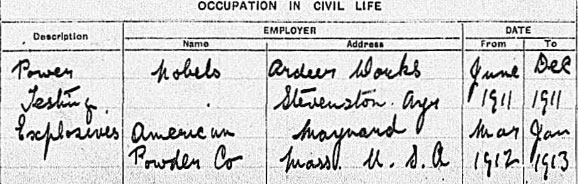 OCCUPATION IN CIVIL LIFE
Description EMPLOYER DATE
Name Address From To
Power Nobels Ardeer Works June Dec
Testing . Stevenston. Ayr 1911 1911
Explosives American Maynard Mar Jan
Powder Co Mass. U.S.A 1912 1913